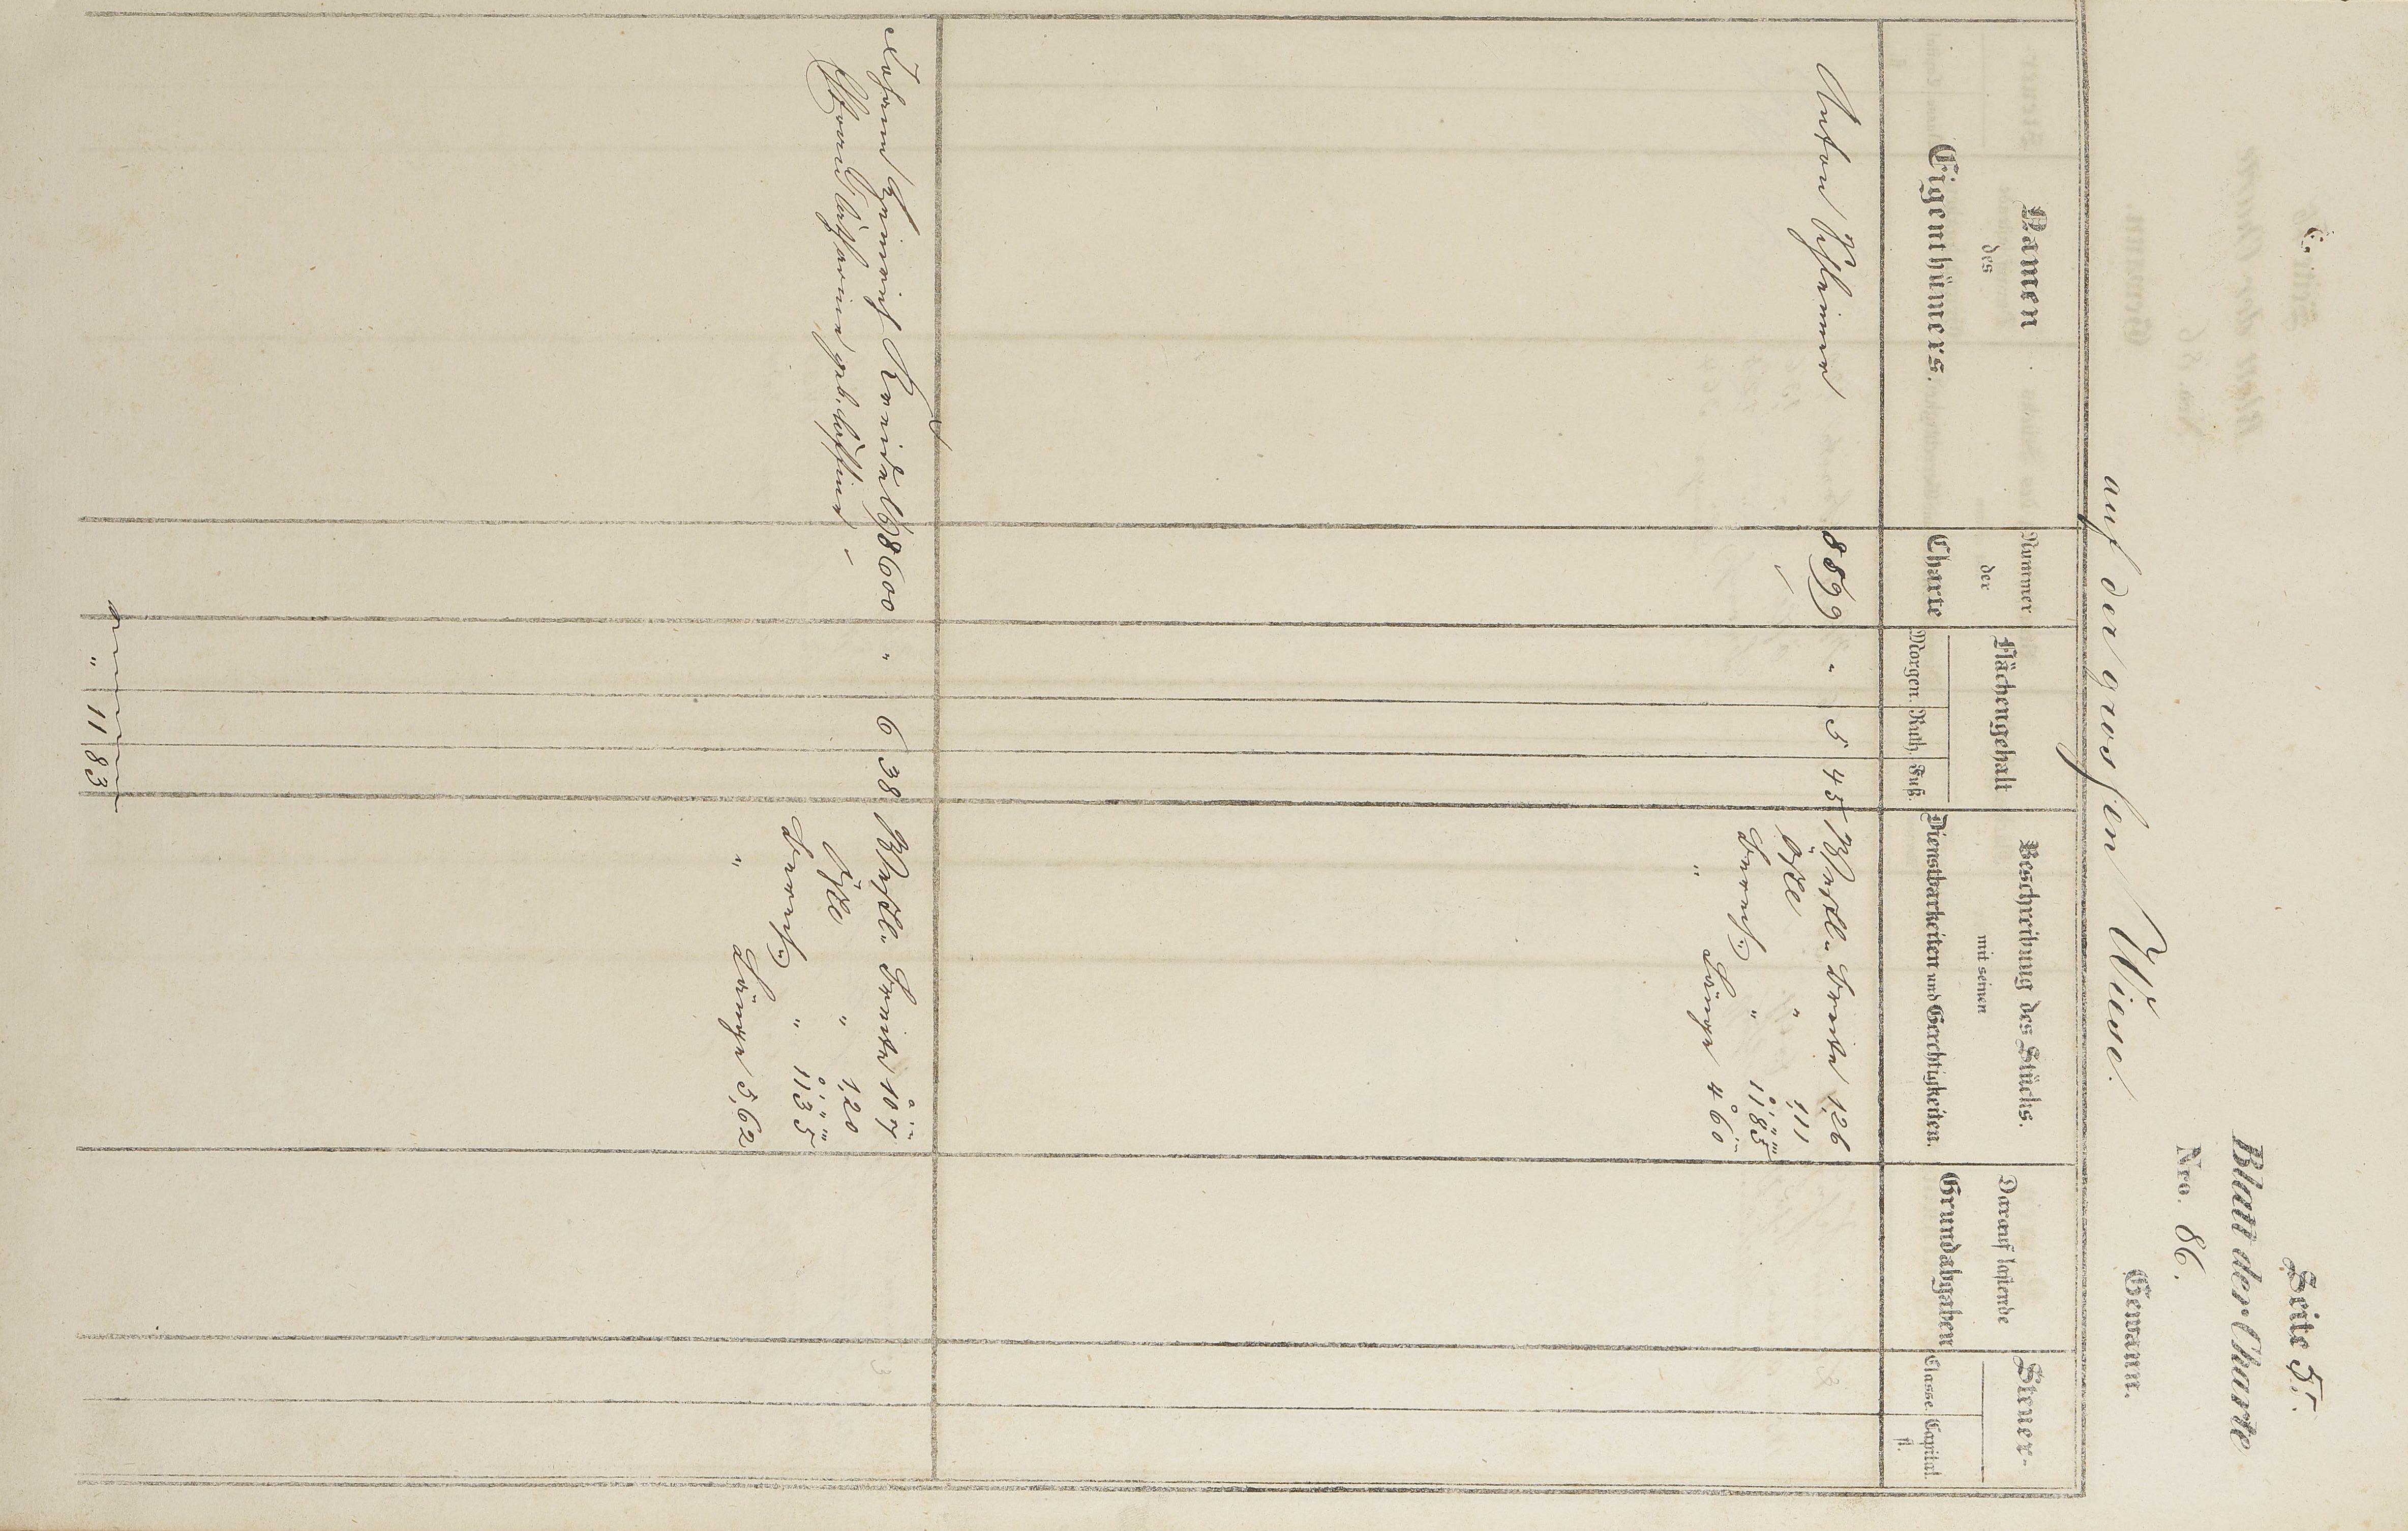 Seite 5.
Blatt der Charte
Nro. 86.
Gewann.
auf der grossen Wiese.
Namen
des
Eigenthümers.
Nummer
der
Charte
Flächengehalt
Morgen. Ruth. Fuß.
Beschreibung des Stücks.
mit seinen
Dienstbarkeiten und Gerechtigkeiten.
Darauf lastende
Grundabgaben
Steuer-
Classe Capital
fl.
Anton
8599 " 5 45
Breite 126
" 1,11
" 1185
" Länge 4 60
Johann Heinrich Kreidel
8600 " 6 38
Breite 107
" 1,20
" 1135
" Länge 5,62
Frau Catharine geb.
" 11 83